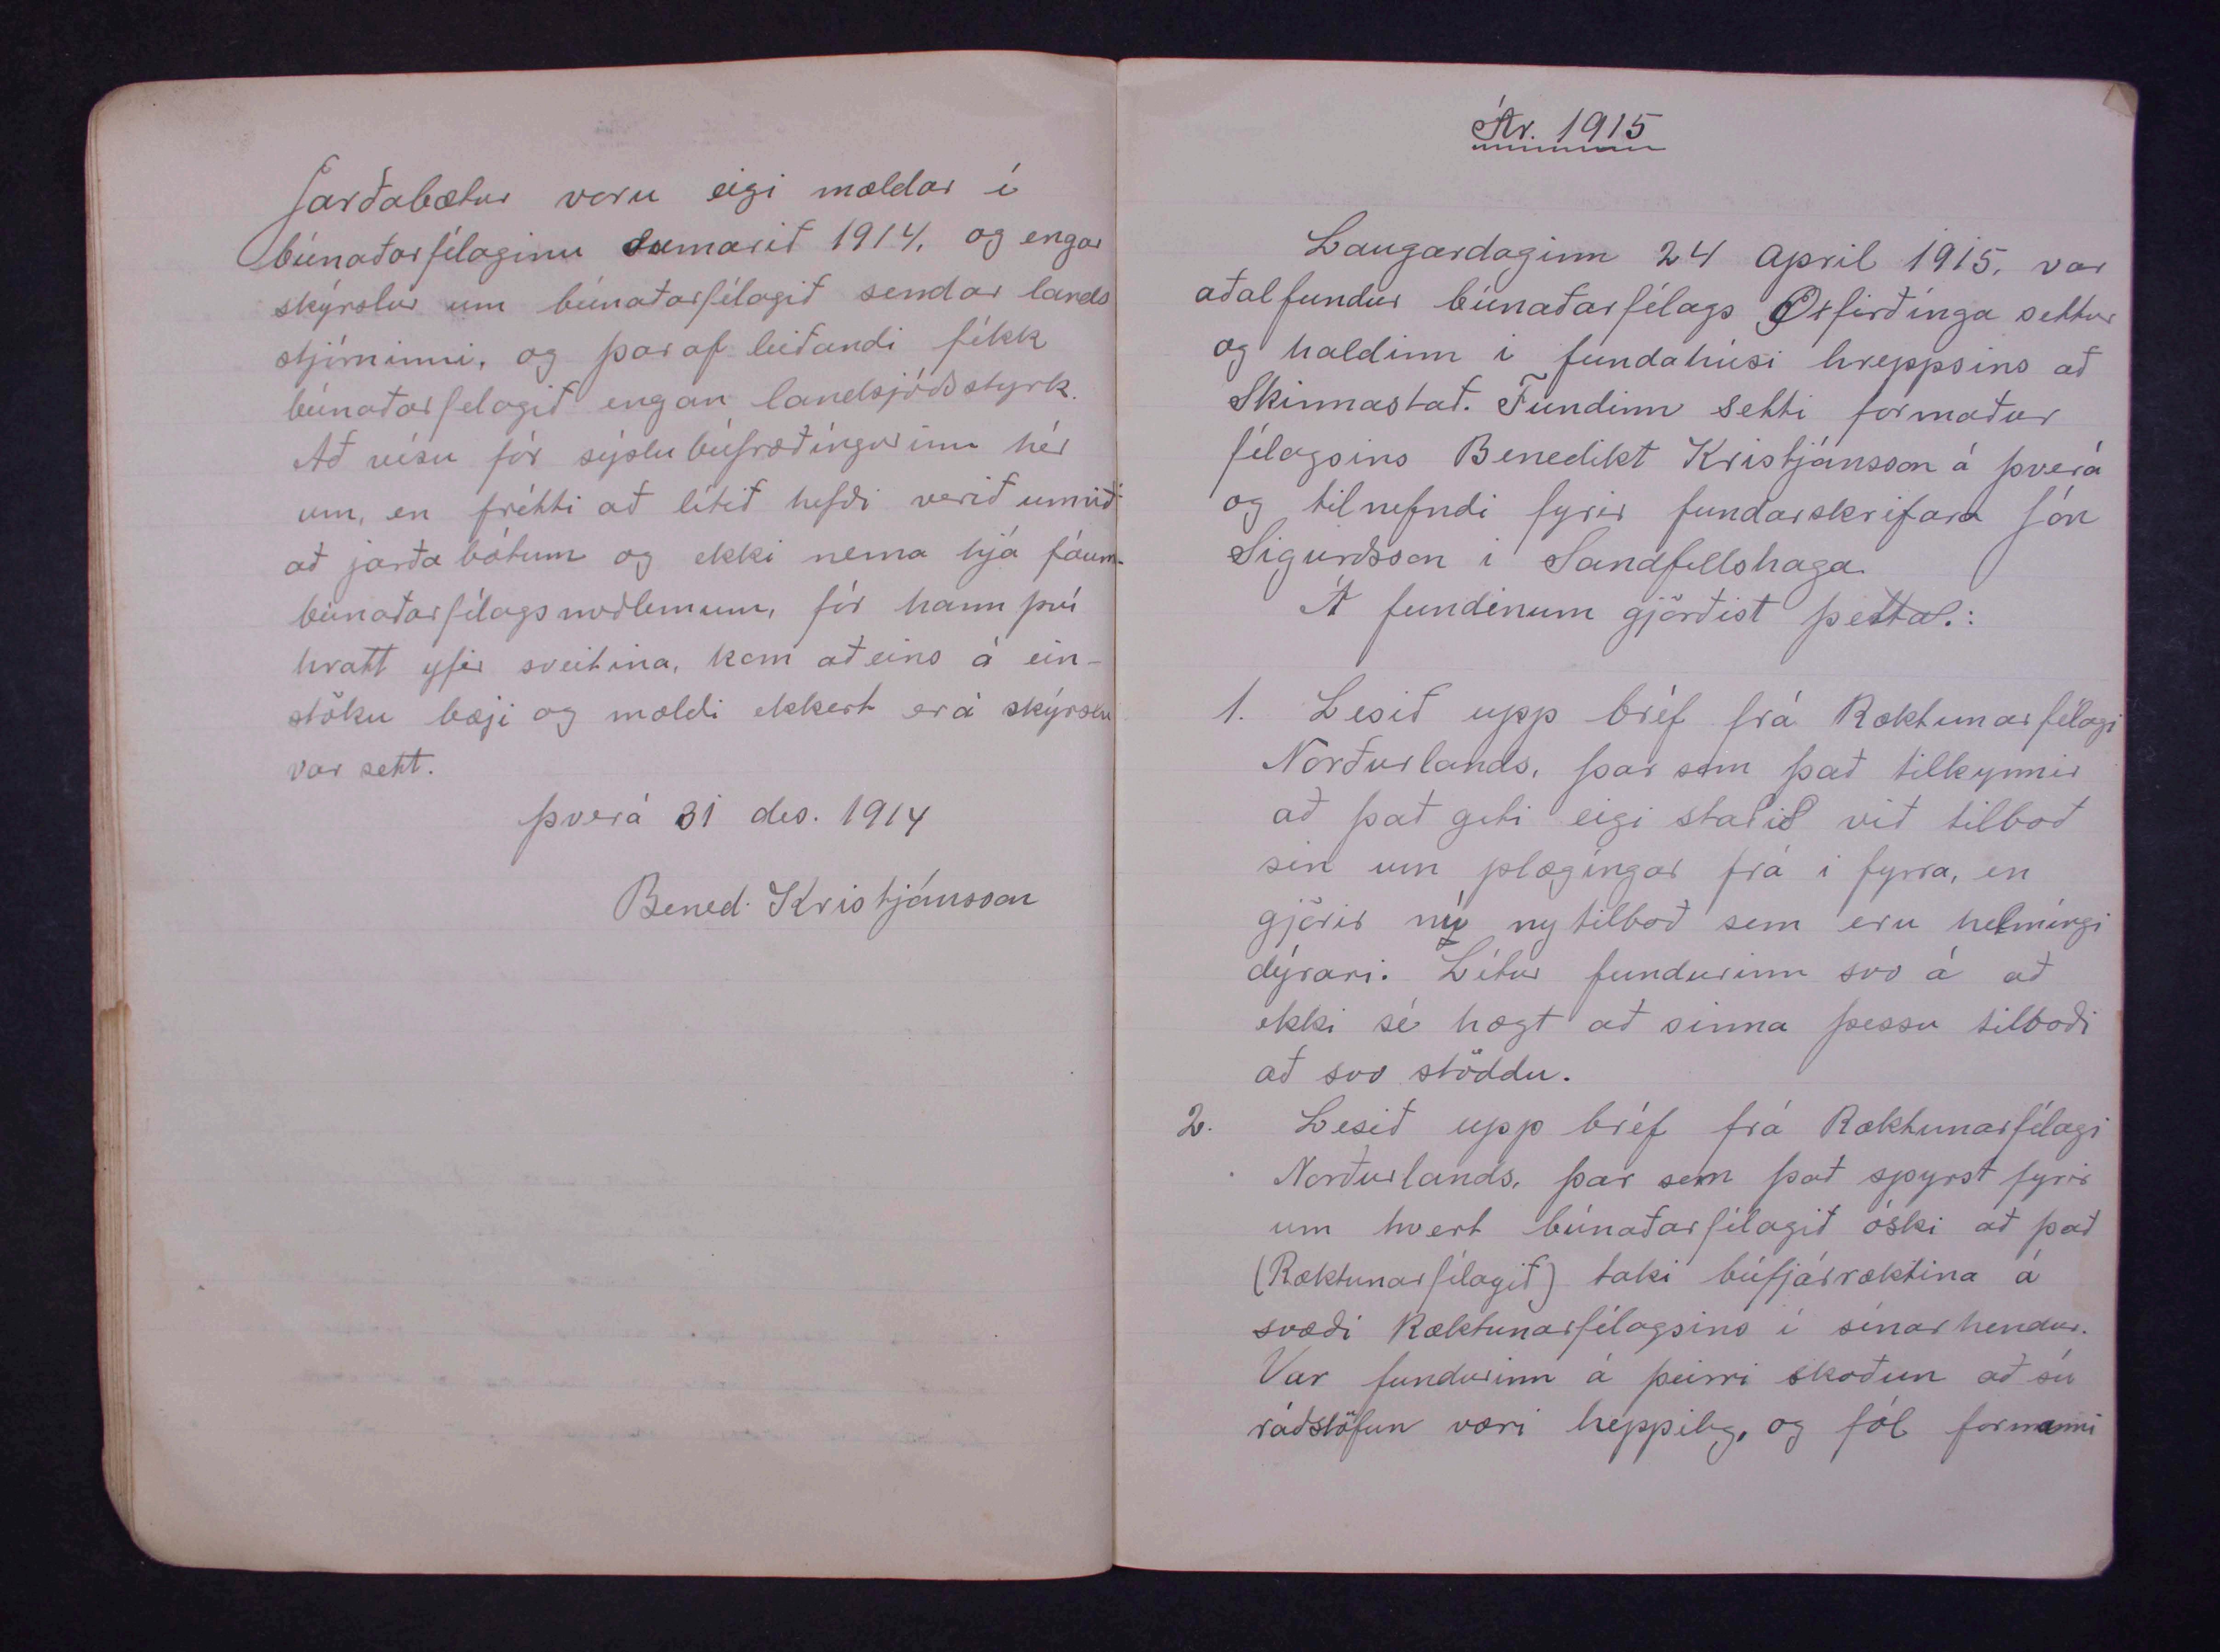 Jarðabætur voru eigi mældar í
búnaðarfélaginu sumarið 1914, og engar
skýrslur um búnaðarfélagið sendar lands
stjórninni, og þar af leiðandi fékk
búnaðarfelagið engan landsjóðsstyrk.
Að vísu fór sýslubúfræðíngurinn hér
um, en frétti að lítið hefði verið unnið
að jarðabótum og ekki nema hjá fáum
búnaðarfélagsmeðlemum, fór hann því
hratt yfir sveitina, kom aðeins á ein-
stöku bæji og mældi ekkert er á skýrslu
var sett.
Þverá 31 des. 1914
Bened. Kristjánsson
Ár. 1915
Laugardaginn 24 April 1915. var
aðalfundur búnaðarfélags Öxfirðínga settur
og haldinn i fundahúsi hreppsins að
Skinnastað. Fundinn setti formaður
félagsins Benedikt Kristjánsson á Þverá
og tilnefndi fyrir fundarskrifara Jón
Sigurðsson i Sandfellshaga.
Á fundinum gjörðist þetta.:
1. Lesið upp bréf frá Ræktunarfélagi
Norðurlands, þar sem það tilkynnir
að það geti eigi staðið við tilboð
sín um plægíngar frá i fyrra, en
gjörir ný tilboð sem eru helmíngi
dýrari. Lítur fundurinn svo á að
ekki sé hægt að sinna þessu tilboði
að svo stöddu.
2. Lesið upp bréf frá Ræktunarfélagi
Norðurlands, þar sem það spyrst fyrir
um hvert búnaðarfélagið óski að það
(Ræktunarfélagið) taki búfjárræktina á
svæði Ræktunarfélagsins í sínar hendur.
Var fundurinn á þeirri skoðun að sú
ráðstöfun væri heppileg, og fól formanni